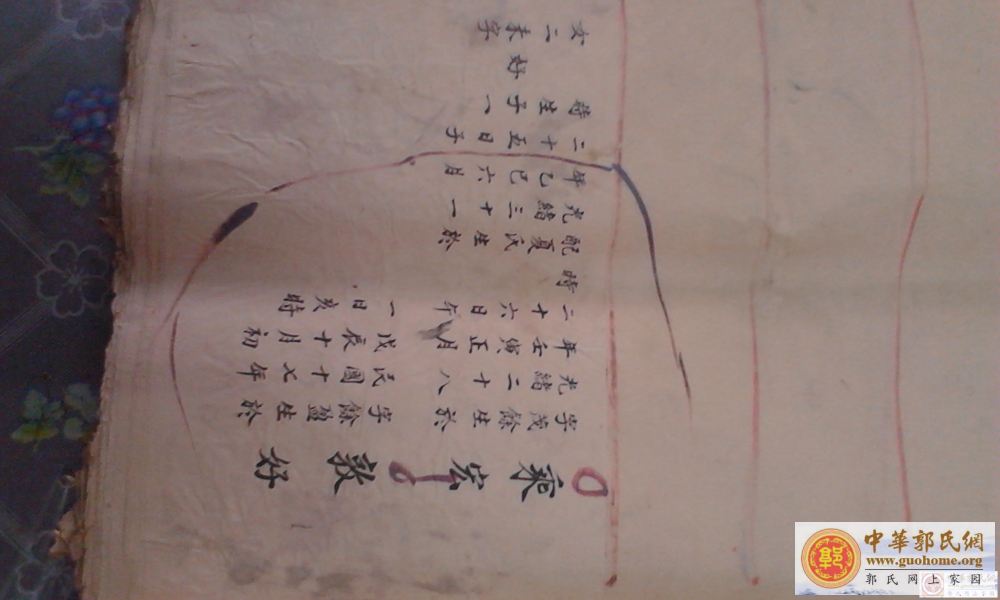 秉宏
字茂餘生於
光緒二十八
年壬寅正月
二十六日午
時
配夏氏生於
光緒三十一
年乙巳六月
二十五日子
時生子一
好
女二未字
敦好
字餘盈生於
民國十七年
戊辰十月初
一日亥時
中華郭氏網
www.guohome.org
郭氏网上家园